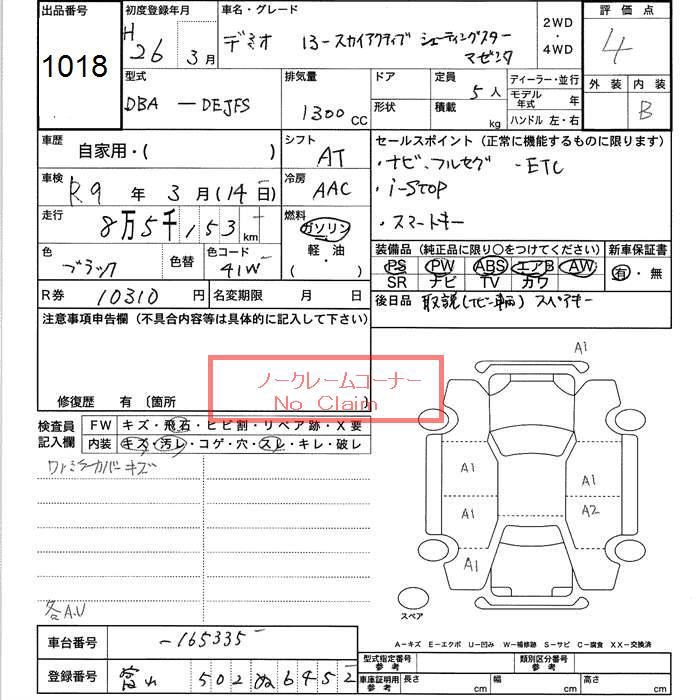 出品番号 初度登録年月 車名・グレード 2WD ・ 4WD 評価点
1018 H 26 3月 デミオ 13-スカイアクティブ シューティングスター 4
マゼンタ
型式 排気量 ドア 定員 5人 ディーラー・並行 外装 内装
DBA - DEJFS 1300 CC 形状 積載 kg モデル年式 年 B
ハンドル 左・右
車歴 自家用・( ) シフト AT セールスポイント (正常に機能するものに限ります)
・ナビ、フルセグ ・ETC
車検 R9 年 3月 (14日) 冷房 AAC ・i-STOP
走行 8万5千153 km 燃料 ガソリン ・スマートキー
軽・油
( )
色 ブラック 色替 色コード 41W 装備品 (純正品に限り○をつけてください) 新車保証書
PS PW ABS エアB AW 有・無
SR ナビ TV カワ
R券 10310 円 名変期限 月 日 後日品 取説(ナビ・車輌) スペアキー
注意事項申告欄 (不具合内容等は具体的に記入して下さい)
ノークレームコーナー
No Claim
修復歴 有 (箇所
検査員記入欄 FW キズ・飛石・ヒビ割・リペア跡・X要
内装 キズ・汚レ・コゲ・穴・スレ・キレ・破レ
バーキズ
各A.U
A1
A1 A1
A1 A2
A1
スペア
A-キズ E-エクボ U-凹み W-補修跡 S-サビ C-腐食 XX-交換済
車台番号 -165335
型式指定番号 参考 類別区分番号 参考
登録番号 富山 502 ぬ6452
車庫証明用 参考 長さ cm 幅 cm 高さ cm